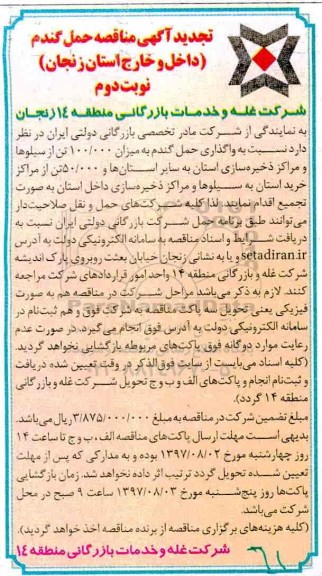 تجدید آگهی مناقصه حمل گندم
(داخل و خارج استان زنجان)
نوبت دوم
شرکت غله و خدمات بازرگانی منطقه ۱۴ زنجان
به نمایندگی از شرکت مادر تخصصی بازرگانی دولتی ایران در نظر
دارد نسبت به واگذاری حمل گندم به میزان ۱۰۰/۰۰۰ تن از سیلوها
و مراکز ذخیره‌سازی استان به سایر استان‌ها و ۵۰/۰۰۰ تن از مراکز
خرید استان به سیلوها و مراکز ذخیره‌سازی داخل استان به صورت
تجمیع اقدام نمایند، لذا کلیه شرکت‌های حمل و نقل صلاحیت‌دار
می‌توانند طبق برنامه حمل شرکت بازرگانی دولتی ایران نسبت به
دریافت شرایط و اسناد مناقصه به سامانه الکترونیکی دولت به آدرس
setadiran.ir و یا به نشانی زنجان خیابان بعثت روبروی پارک اندیشه
شرکت غله و بازرگانی منطقه ۱۴ واحد امور قراردادهای شرکت مراجعه
کنند. لازم به ذکر می‌باشد مراحل شرکت در مناقصه هم به صورت
فیزیکی یعنی تحویل سه پاکت مناقصه به شرکت فوق و هم ثبت‌نام در
سامانه الکترونیکی دولت به آدرس فوق انجام می‌گیرد، در صورت عدم
رعایت موارد دوگانه فوق پاکت‌های مربوطه بازگشایی نخواهد گردید.
(کلیه اسناد می‌بایست از سایت فوق‌الذکر در وقت تعیین شده دریافت
و ثبت‌نام انجام و پاکت‌های الف و ب و ج تحویل شرکت غله و بازرگانی
منطقه ۱۴ گردد).
مبلغ تضمین شرکت در مناقصه به مبلغ ۳/۸۷۵/۰۰۰/۰۰۰ ریال می‌باشد.
بدیهی است مهلت ارسال پاکت‌های مناقصه الف، ب و ج تا ساعت ۱۴
روز چهارشنبه مورخ ۱۳۹۷/۰۸/۰۲ بوده و به مدارکی که پس از مهلت
تعیین شده تحویل گردد ترتیب اثر داده نخواهد شد. زمان بازگشایی
پاکت‌ها روز پنج‌شنبه مورخ ۱۳۹۷/۰۸/۰۳ ساعت ۹ صبح در محل
شرکت می‌باشد.
(کلیه هزینه‌های برگزاری مناقصه از برنده مناقصه اخذ خواهد گردید).
شرکت غله و خدمات بازرگانی منطقه ۱۴